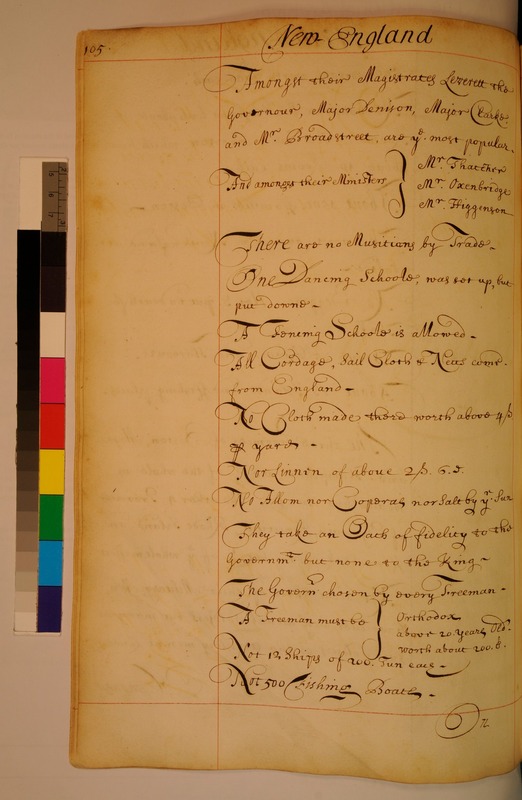 105.
New England
Amongst their Magistrates Leverett the
Governour, Major Denison, Major Clarke
and Mr. Broadstreet, are ye. most popular.
And amongst their Ministers
Mr. Thatcher
Mr. Oxenbridge
Mr. Higgenson
There are no Musitians by Trade-
One Dancing Schoole, was set up, but
put downe-
A Fencing Schoole is allowed-
All Cordage, Sail Cloth & Netts come
from England-
No Cloth made there worth above 4/s
yard-
Nor Linnen of above 2/s. 6.d.
No Allom nor Coperas nor Salt by ye. Sun
They take an Oath of fidelity to the
Governmt. but none to the King-
The Governr. chosen by every Freeman-
A Freeman must be
Orthodox
above 20 years Old.
worth about 200.
Not 12 Ships of 200. Tun each-
Not 500 Fishing Boats-